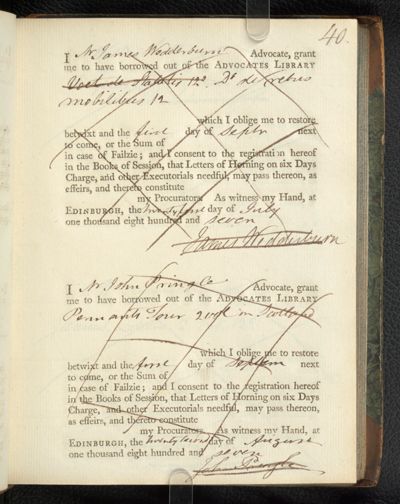 40.
I Mr James Wedderburn Advocate, grant
me to have borrowed out of the ADVOCATES LIBRARY
Voet de 12º. Dº de rebus
mobilibus 12
which I oblige me to restore
betwixt and the first day of Septr next
to come, or the Sum of
in case of Failzie; and I consent to the registration hereof
in the Books of Session, that Letters of Horning on six Days
Charge, and other Executorials needful, may pass thereon, as
effeirs, and thereto constitute
my Procurators. As witness my Hand, at
EDINBURGH, the day of July
one thousand eight hundred and seven
James Wedderburn
I Mr John Pringle Advocate, grant
me to have borrowed out of the ADVOCATES LIBRARY
Pennants Tour in Scotland
which I oblige me to restore
betwixt and the first day of next
to come, or the Sum of
in case of Failzie; and I consent to the registration hereof
in the Books of Session, that Letters of Horning on six Days
Charge, and other Executorials needful, may pass thereon,
as effeirs, and thereto constitute
my Procurators. As witness my Hand, at
EDINBURGH, the day of August
one thousand eight hundred and seven
John Pringle